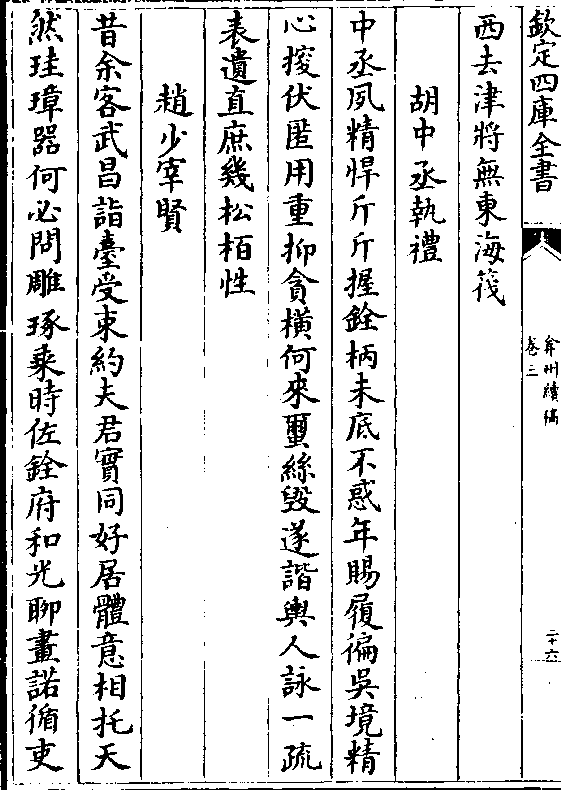 欽定四庫全書
弇州續稿
卷三
二十六
西去津將無東海筏
胡中丞執禮
中丞夙精悍斤斤握銓柄未底不惑年賜履偏吳境精
心搜伏匿用重抑貪橫何來蠒絲毀遂諧輿人詠一疏
表遺直庶幾松栢性
趙少宰賢
昔余客武昌詣臺受束約夫君實同好居體意相托天
然珪璋器何必問雕琢乗時佐銓府和光聊畫諾循吏